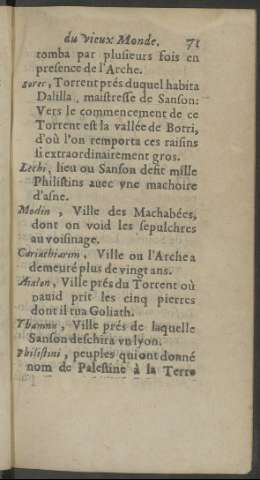 du vieux Monde. 71
tomba par plusieurs fois en
presence de l'Arche.
Sorec, Torrent prés duquel habita
Dalilla, maistresse de Sanson:
Vers le commencement de ce
Torrent est la vallée de Botri,
d'où l'on remporta ces raisins
si extraordinairement gros.
Lechi, lieu ou Sanson defit mille
Philistins auec vne machoire
d'asne.
Modin, Ville des Machabées,
dont on void les sepulchres
au voisinage.
Cariathiarim, Ville ou l'Arche a
demeuré plus de vingt ans.
Aialon, Ville prés du Torrent où
Dauid prit les cinq pierres
dont il tua Goliath.
Thamna, Ville prés de laquelle
Sanson deschira vn lyon.
Philistini, peuples qui ont donné
nom de Palestine à la Terre